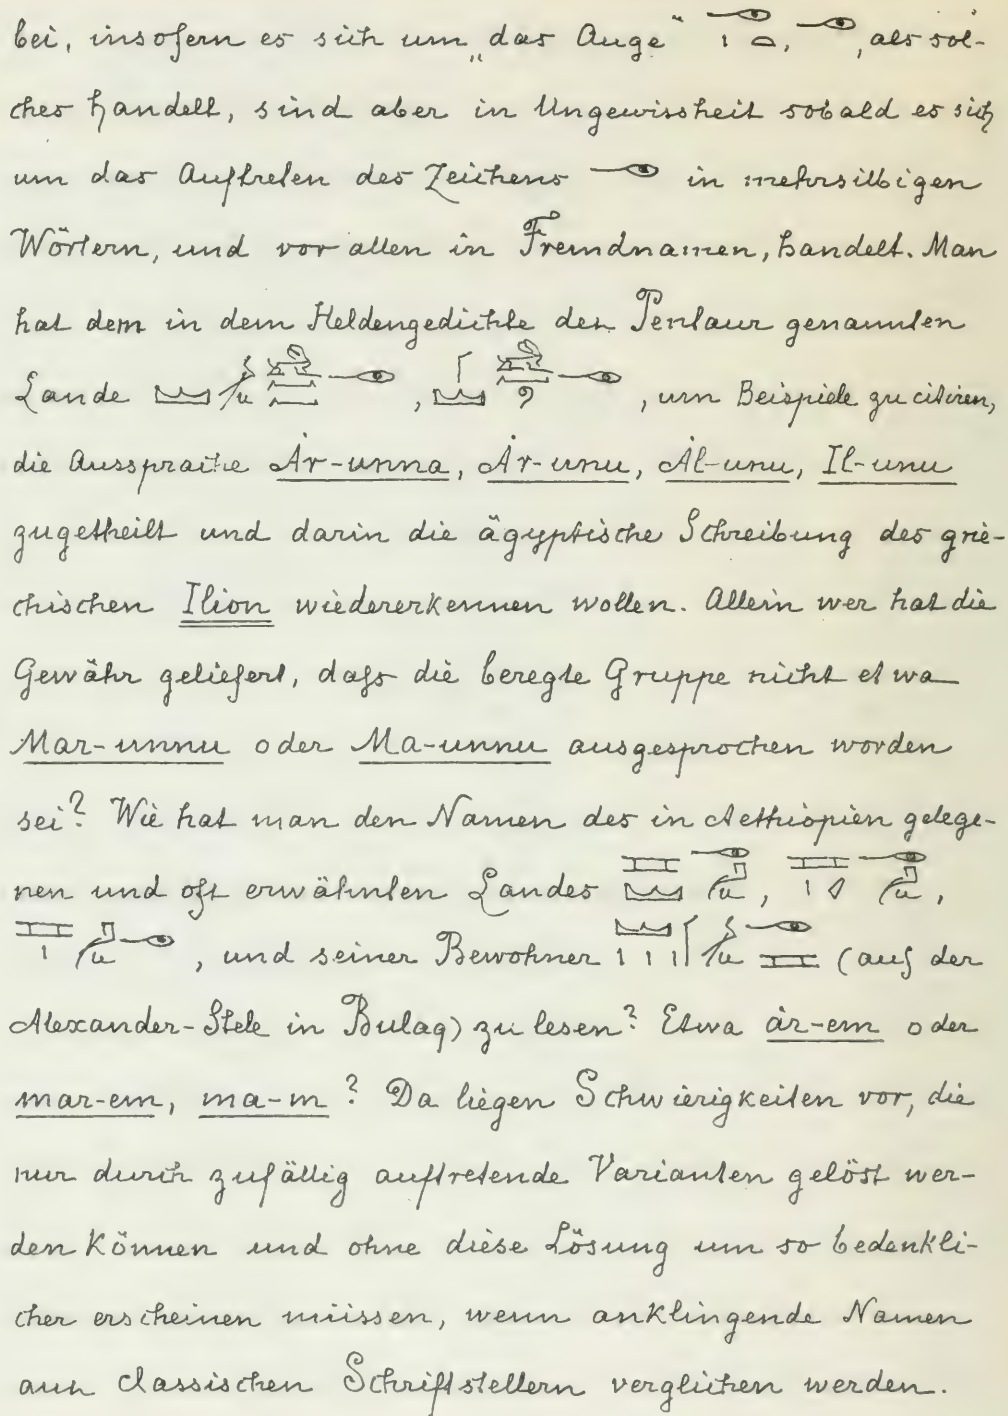 bei, insofern es sich um „das Auge“ 𓁹𓏤𓏏, 𓁹, als sol-
ches handelt, sind aber in Ungewissheit sobald es sich
um das Auftreten des Zeichens 𓁹 in mehrsilbigen
Wörtern, und vor allen in Fremdnamen, handelt. Man
hat dem in dem Heldengedichte des Pentaur genannten
Lande , , um Beispiele zu citiren,
die Aussprache Ȧr-unna, Ȧr-unu, Ȧl-unu, Il-unu
zugetheilt und darin die ägyptische Schreibung des grie-
chischen Ilion wiedererkennen wollen. Allein wer hat die
Gewähr geliefert, dafs die beregte Gruppe nicht etwa
Mar-unnu oder Ma-unnu ausgesprochen worden
sei? Wie hat man den Namen des in Aethiopien gelege-
nen und oft erwähnten Landes , ,
, und seiner Bewohner (auf der
Alexander-Stele in Bulaq) zu lesen? Etwa ȧr-em oder
mar-em, ma-m? Da liegen Schwierigkeiten vor, die
nur durch zufällig auftretende Varianten gelöst wer-
den können und ohne diese Lösung um so bedenkli-
cher erscheinen müssen, wenn anklingende Namen
aus classischen Schriftstellern verglichen werden.